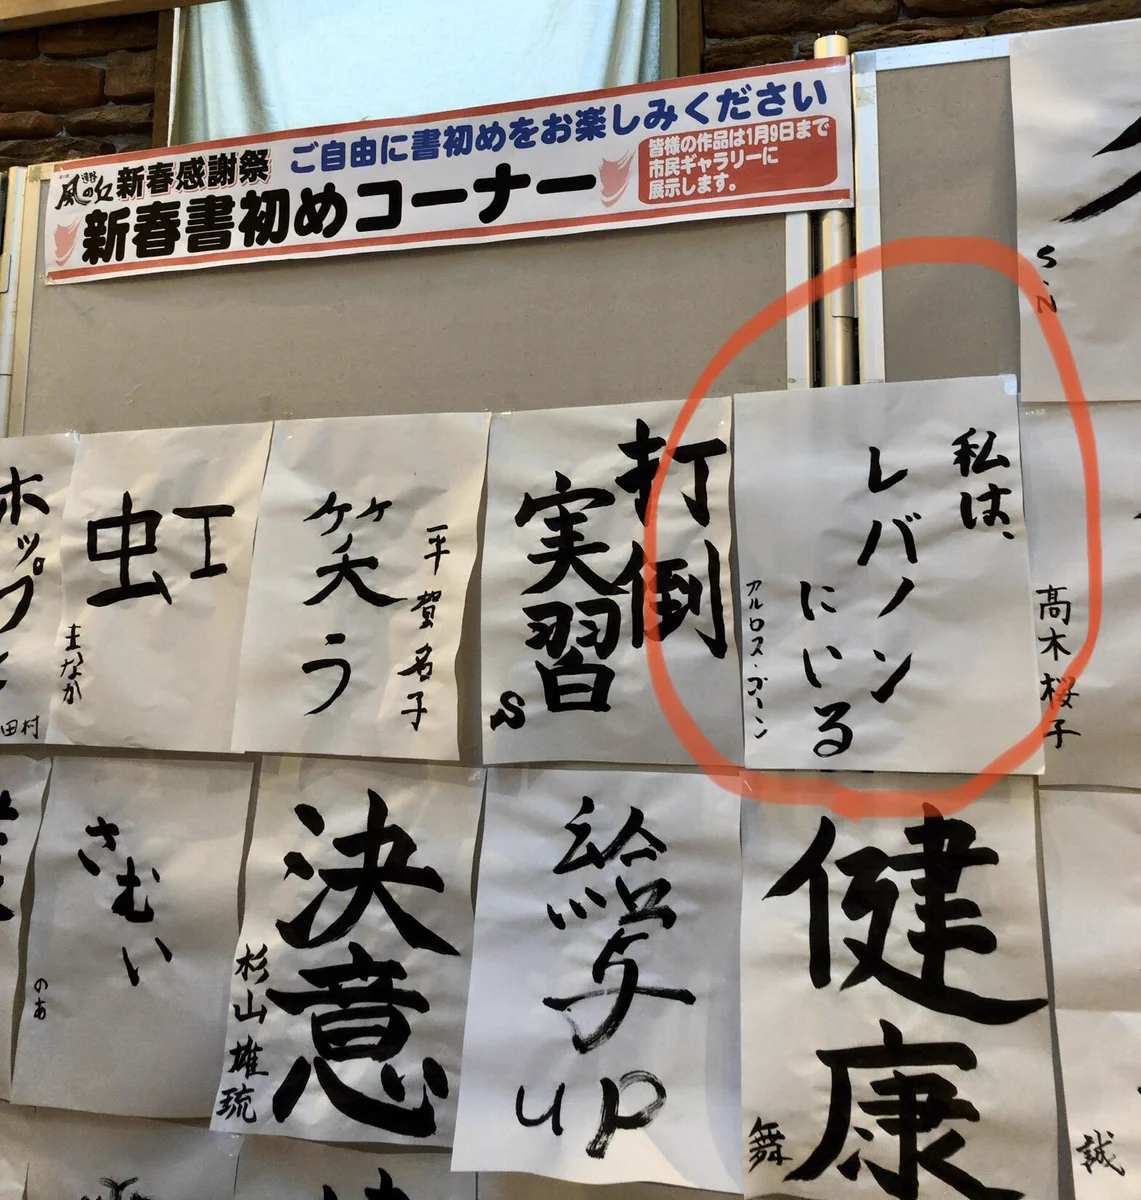 新春感謝祭
ご自由に書初めをお楽しみください
新春書初めコーナー
皆様の作品は1月9日まで
市民ギャラリーに
展示します。
S.N
私は、
レバノン
にいる
アルロス・ゴーン
髙木桜子
打倒
実習
S
平賀名子
笑う
虹
まなか
ホップ
田村
健康
舞
給与
up
決意
杉山雄琉
さむい
のあ
誠